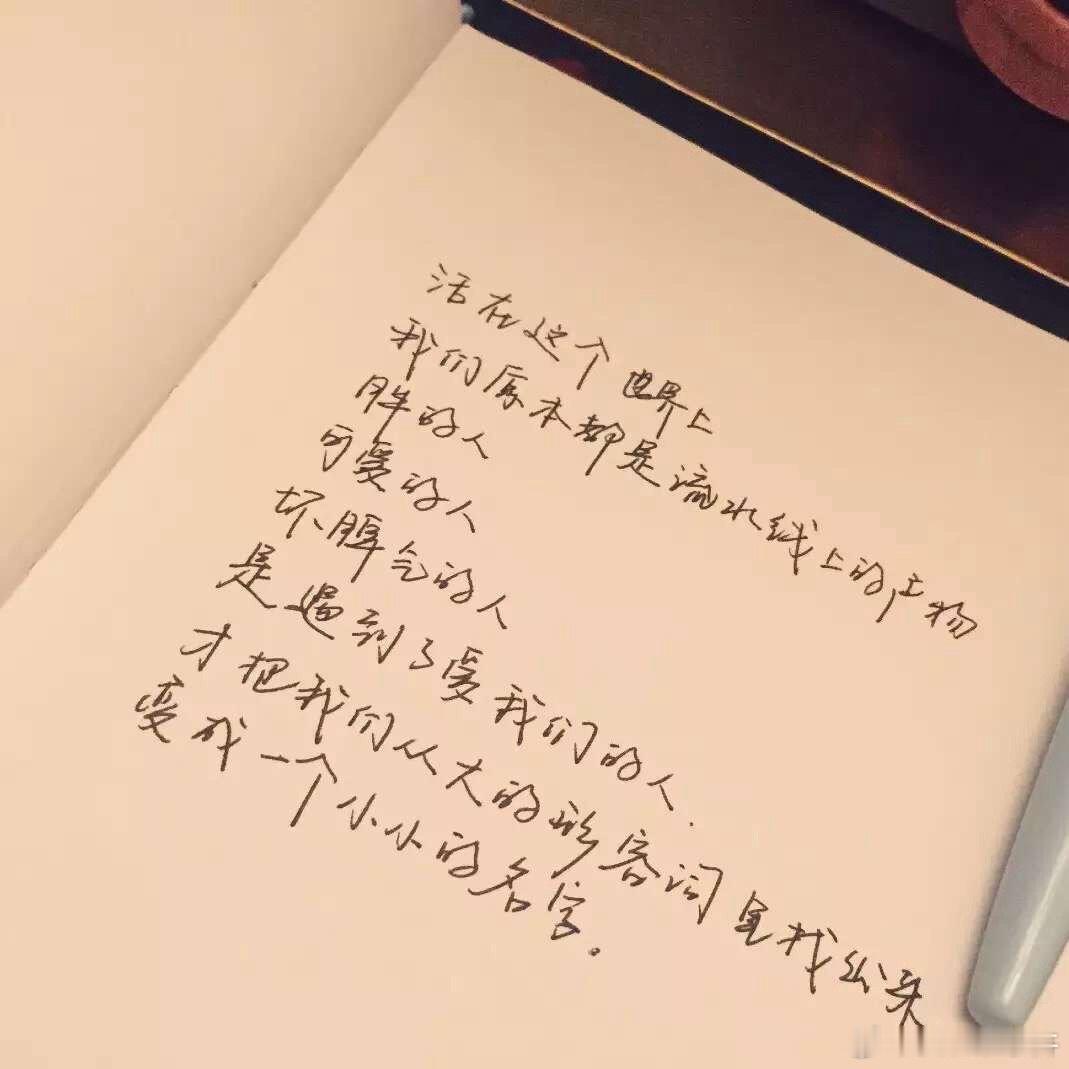 活在这个世界上
我们原本都是流水线上的产物
胖的人
可爱的人
坏脾气的人
是遇到了爱我们的人.
才把我们从大的形容词里找出来
变成一个小小的名字。